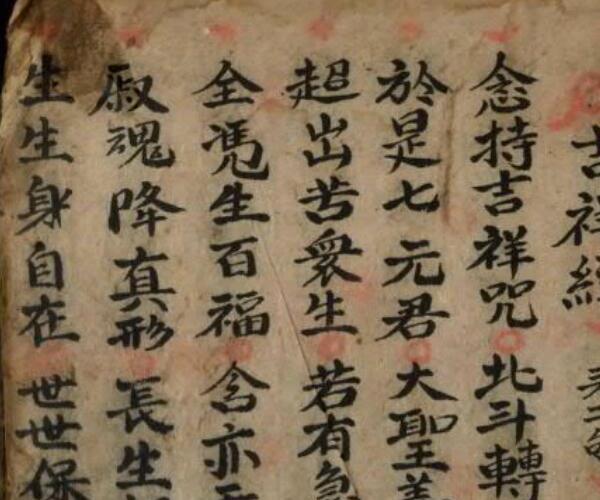 吉祥經
念持吉祥咒北斗轉
於是七元君大聖善
超出苦衆生若有急
全憑生百福含亦
寂魂降真形長生
生生身自在世世保